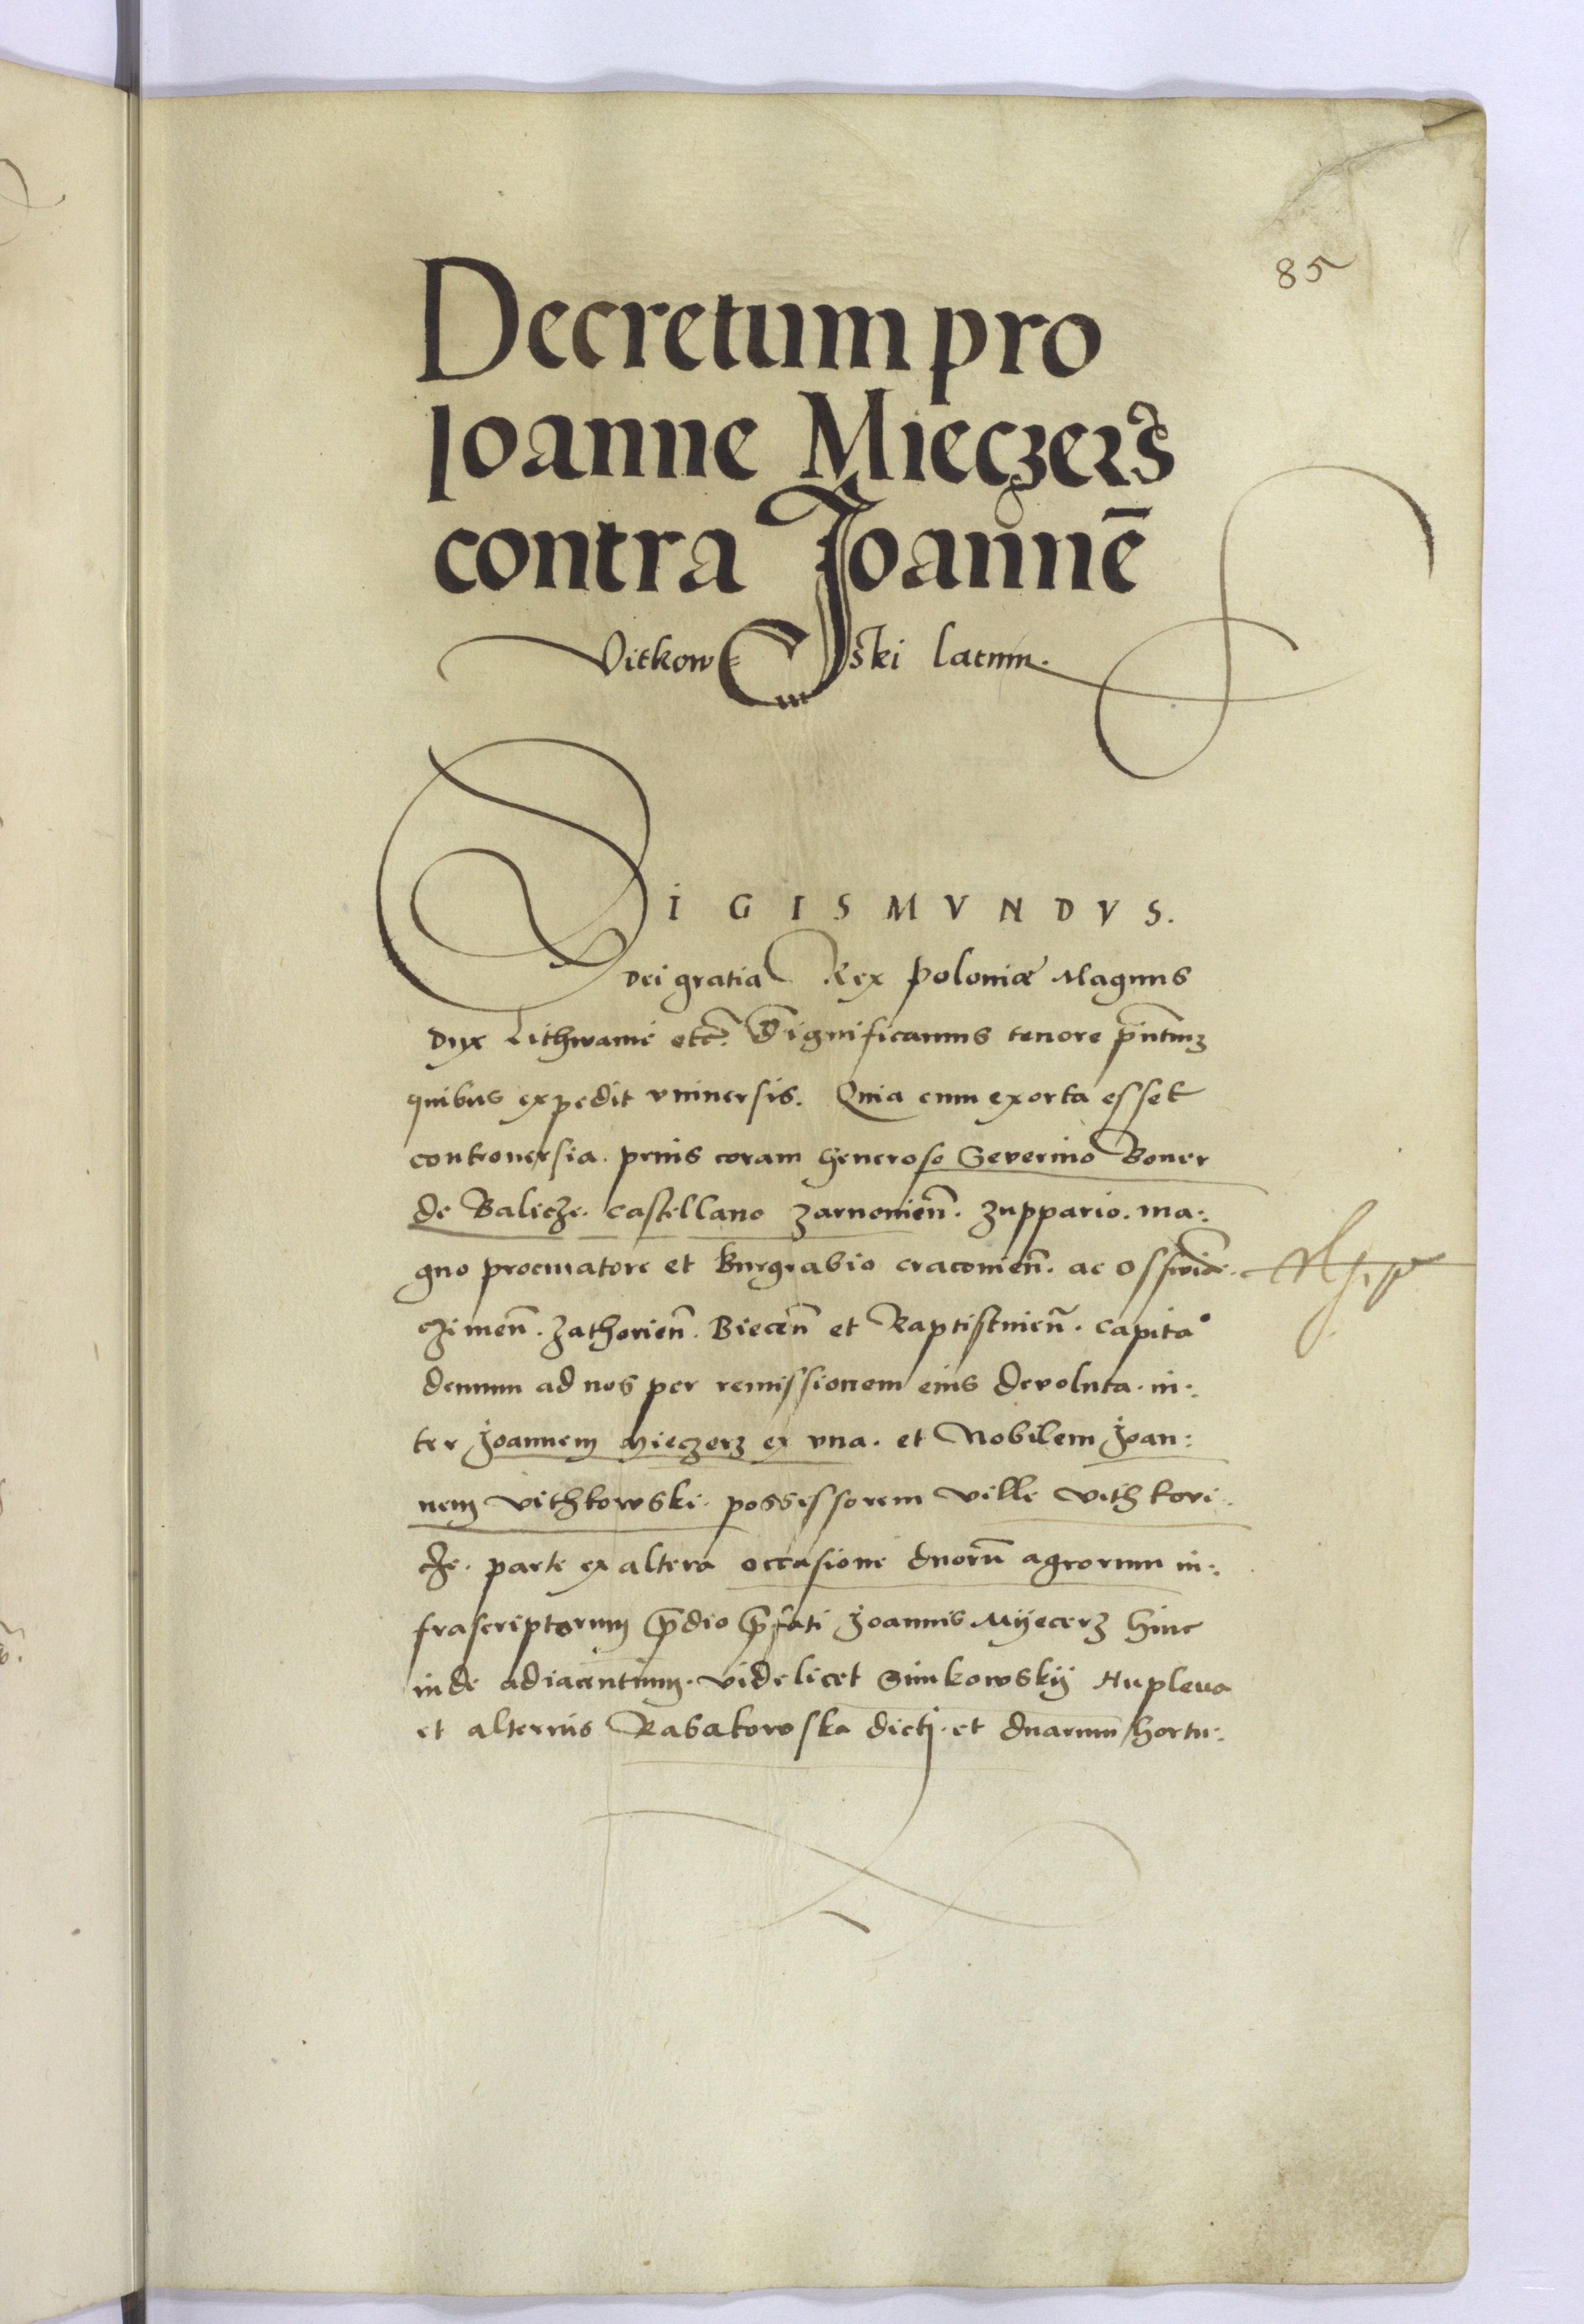 85
Decretum pro
Joanne Mieczerz
contra Joannē
Vitkow=ski latum.
SIGISMVNDVS.
Dei gratia Rex Poloniæ Magnus
Dux Lithwanie etc̄. Significamus tenore p̄ntium
quibus expedit vniuersis. Quia cum exorta esset
controuersia. prius coram Generoso Seuerino Boner
de Balicze. Castellano Zarnouien̄. Zuppario. ma:
gno procuratore et Burgrabio Cracouien̄. ac Osswiē:
czimen̄. Zathorien̄. Biecen̄ et Rapstinien̄. Capita°
demum ad nos per remissionem eius deuoluta. in:
ter Joannem Mieczerz ex vna. et Nobilem Joan:
nem Vithkowski. possessorem ville Vithkoui:
cze. parte ex altera occasione duorū agrorum in:
frascriptorum p̄dio p̄fati Joannis Mijecerz hinc
inde adiacentium. videlicet Simkowskij Hupleua
et alterius Rabakowska dicti. et duarum hortu: